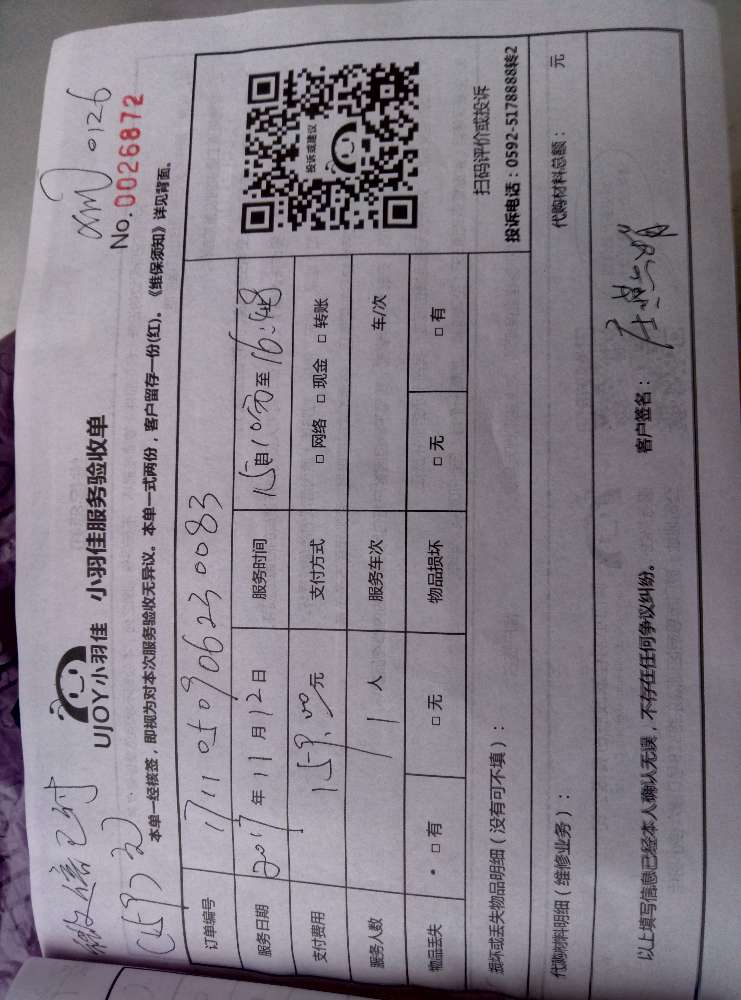 微信已付
159元
0126
UJOY小羽佳 小羽佳服务验收单
No.0026872
本单一经核签，即视为对本次服务验收无异议。本单一式两份，客户留存一份(红)。《维保须知》详见背面。
订单编号 17110509062300083
服务日期 2017年11月12日 服务时间 15 自 至 16:48
支付费用 159.00元 支付方式 □ 网络 □ 现金 □ 转账
服务人数 1 人 服务车次 车/次
物品丢失 □ 有 □ 无 物品损坏 □ 无 □ 有
投诉或建议
扫码评价或投诉
投诉电话：0592-5178888转2
损坏或丢失物品明细（没有可不填）：
代购材料明细（维修业务）： 代购材料总额： 元
以上填写信息已经本人确认无误，不存在任何争议纠纷。 客户签名：